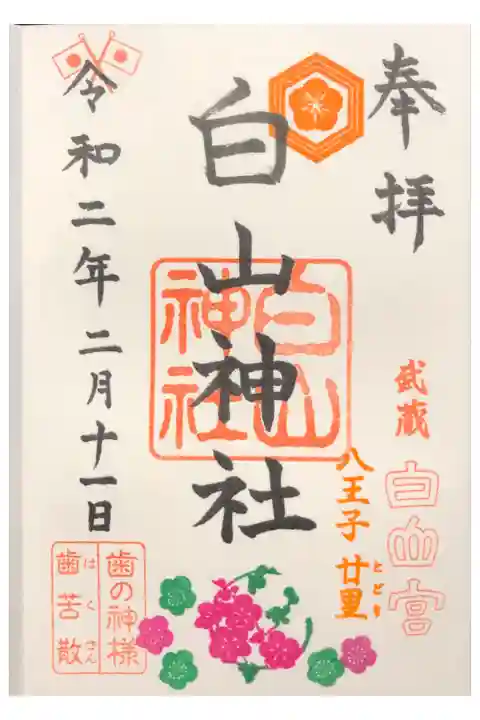 奉拝
武蔵
白山宮
八王子 廿里
とどり
白山神社
白山
神社
令和二年二月十一日
歯の神様
歯苦散
はくさん